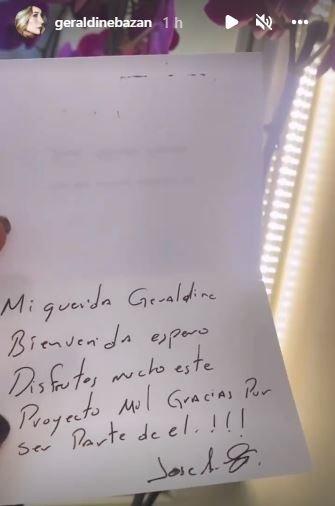 geraldinebazan 1 h
Mi querida Geraldine
Bienvenida espero
Disfrutes mucho este
Proyecto Mil Gracias Por
Ser Parte de el.!!!